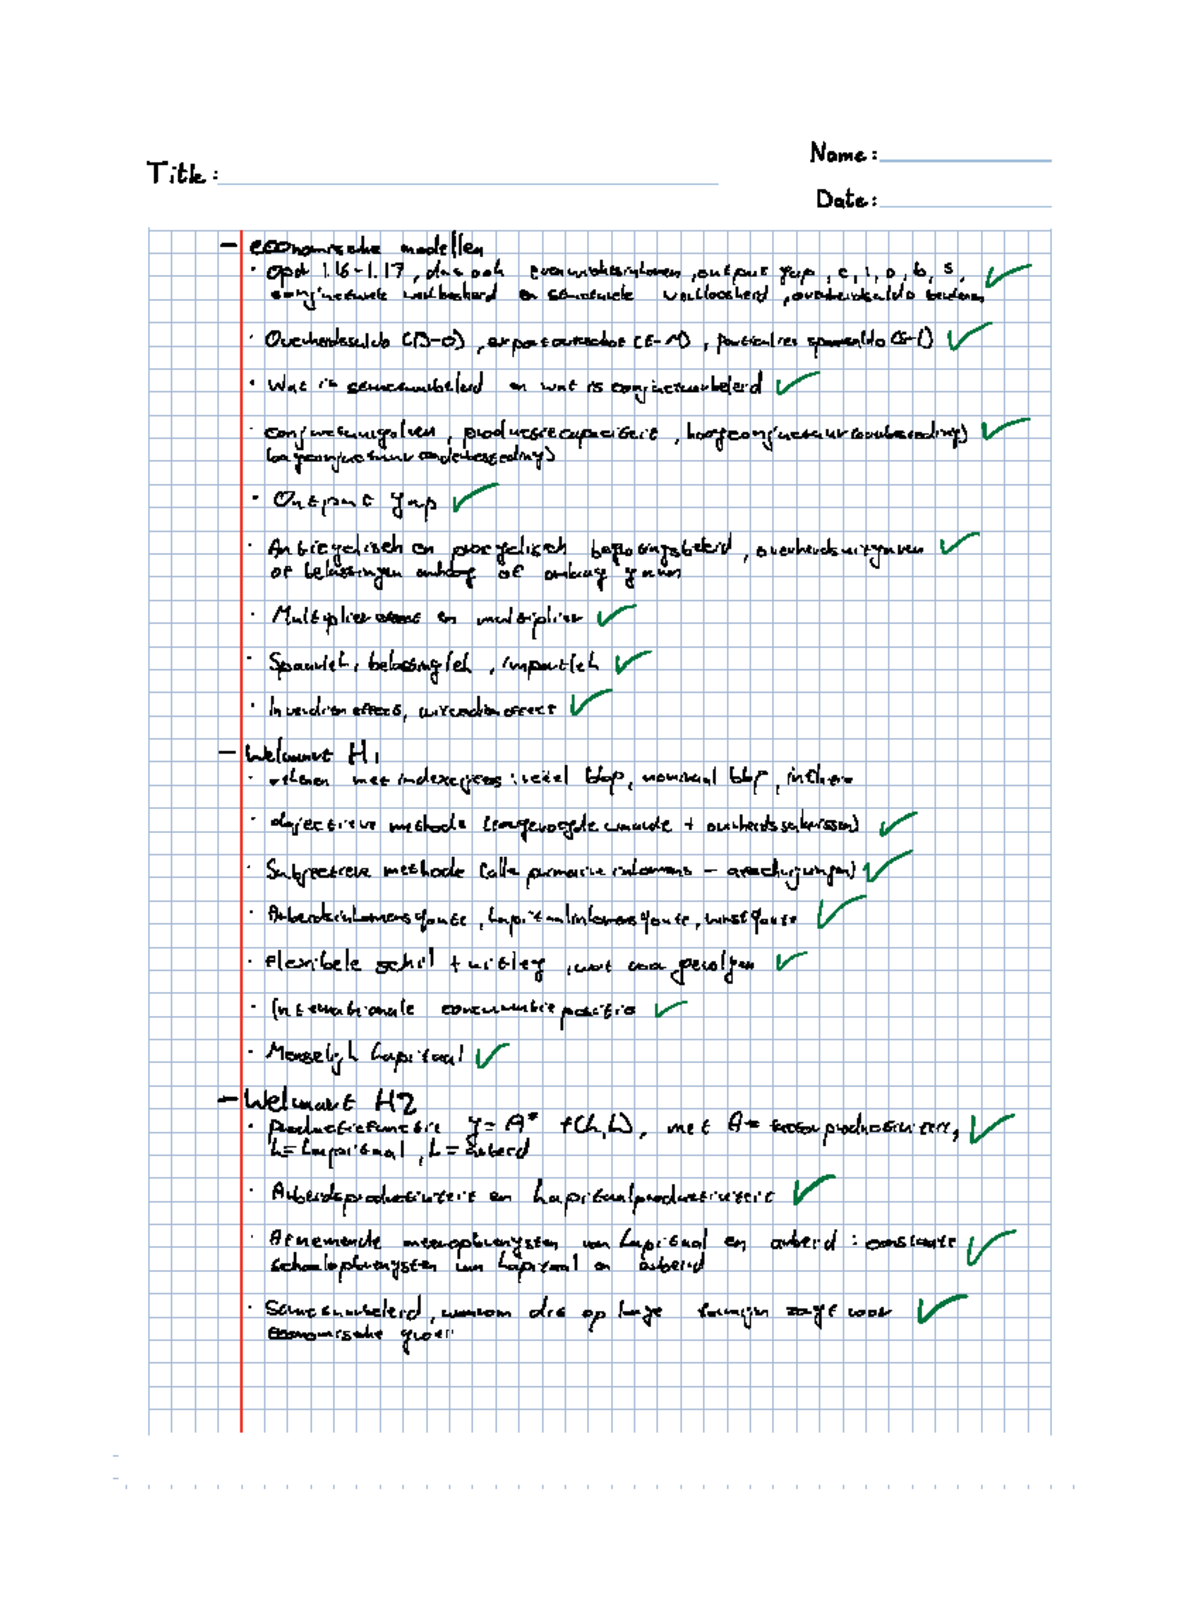 Name:
Title:
Date:
- economische modellen
· Opd 1.16-1.17, dus ook evenwichtsinkomen, output gap, c, i, o, b, s,
conjuncturele werkloosheid en structurele werkloosheid, overheidssaldo
· Overheidssaldo (B-O), exportoverschot (E-M), particulier spaarsaldo (S-I)
· Wat is structuurbeleid en wat is conjunctuurbeleid
· conjunctuurgolven, productiecapaciteit, hoogconjunctuur (overbesteding)
laagconjunctuur (onderbesteding)
· Output gap
· Anticyclisch en procyclisch begrotingsbeleid, overheidsuitgaven
of belastingen omhoog of omlaag gaan
· Multiplier effect en multiplier
· Spaarlek, belastinglek, importlek
· Inverdien effect, uitverdien effect
- Welvaart H1
· rekenen met indexcijfers: reëel bbp, nominaal bbp, inflatie
· objectieve methode (toegevoegde waarde + overheidssalarissen)
· Subjectieve methode (alle primaire inkomens - afschrijvingen)
· Arbeidsinkomensquote, kapitaalinkomensquote, winstquote
· Flexibele schil + uitleg, wat voor gevolgen
· Internationale concurrentie positie
· Menselijk kapitaal
- Welvaart H2
· Productiefunctie y = A* f(k,L), met A = factorproductiviteit,
k = kapitaal, L = arbeid
· Arbeidsproductiviteit en kapitaalproductiviteit
· Afnemende meeropbrengsten van kapitaal en arbeid: constante
schaalopbrengsten van kapitaal en arbeid
· Structuurbeleid, waarom dit op lange termijn zorgt voor
economische groei